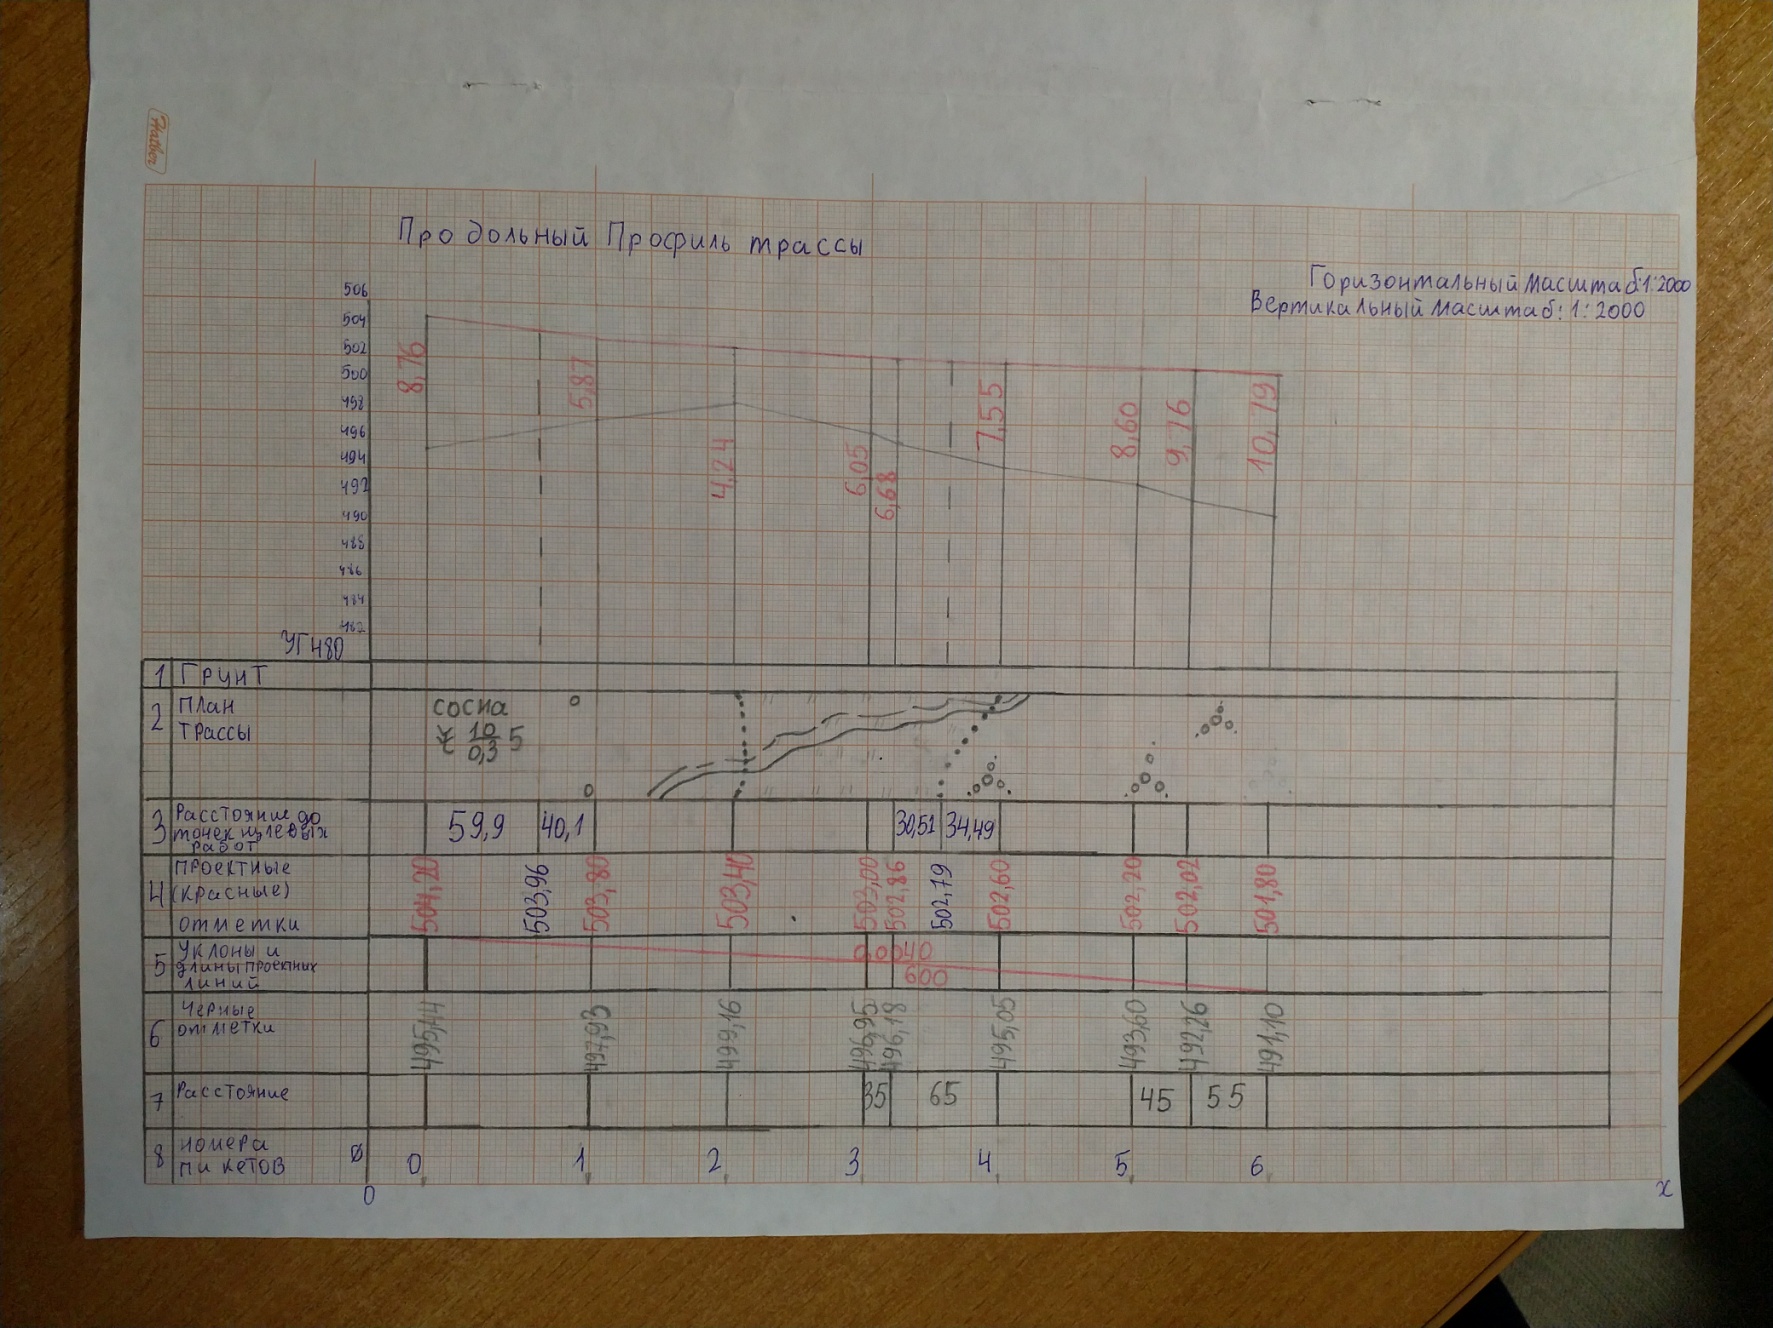 Hatber
Продольный Профиль трассы
Горизонтальный масштаб:1:2000
Вертикальный масштаб: 1:2000
506
504
502
500
498
496
494
492
490
488
486
484
482
УГ480
8,76
5,87
4,24
6,05
6,68
7,55
8,60
9,76
10,79
1 Грунт
2 План
трассы
сосна
10
0,3
5
3 Расстояние до
точек нулевых
работ
59,9 40,1 30,51 34,49
4 Проектные
(красные)
отметки
504,20 503,96 503,80 503,40 503,00 502,86 502,79 502,60 502,20 502,02 501,80
5 Уклоны и
длины проектных
линий
0,0040
600
6 Черные
отметки
495,44 497,93 499,16 496,95 496,18 495,05 493,60 492,26 491,10
7 Расстояние
35 65 45 55
8 номера
пикетов
0 1 2 3 4 5 6
0 x